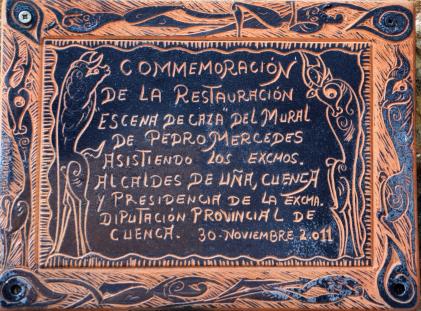 COMMEMORACIÓN
DE LA RESTAURACIÓN
ESCENA DE CAZA DEL MURAL
DE PEDRO MERCEDES
ASISTIENDO LOS EXCMOS.
ALCALDES DE UÑA, CUENCA
Y PRESIDENCIA DE LA EXCMA.
DIPUTACIÓN PROVINCIAL DE
CUENCA. 30-NOVIEMBRE 2.011